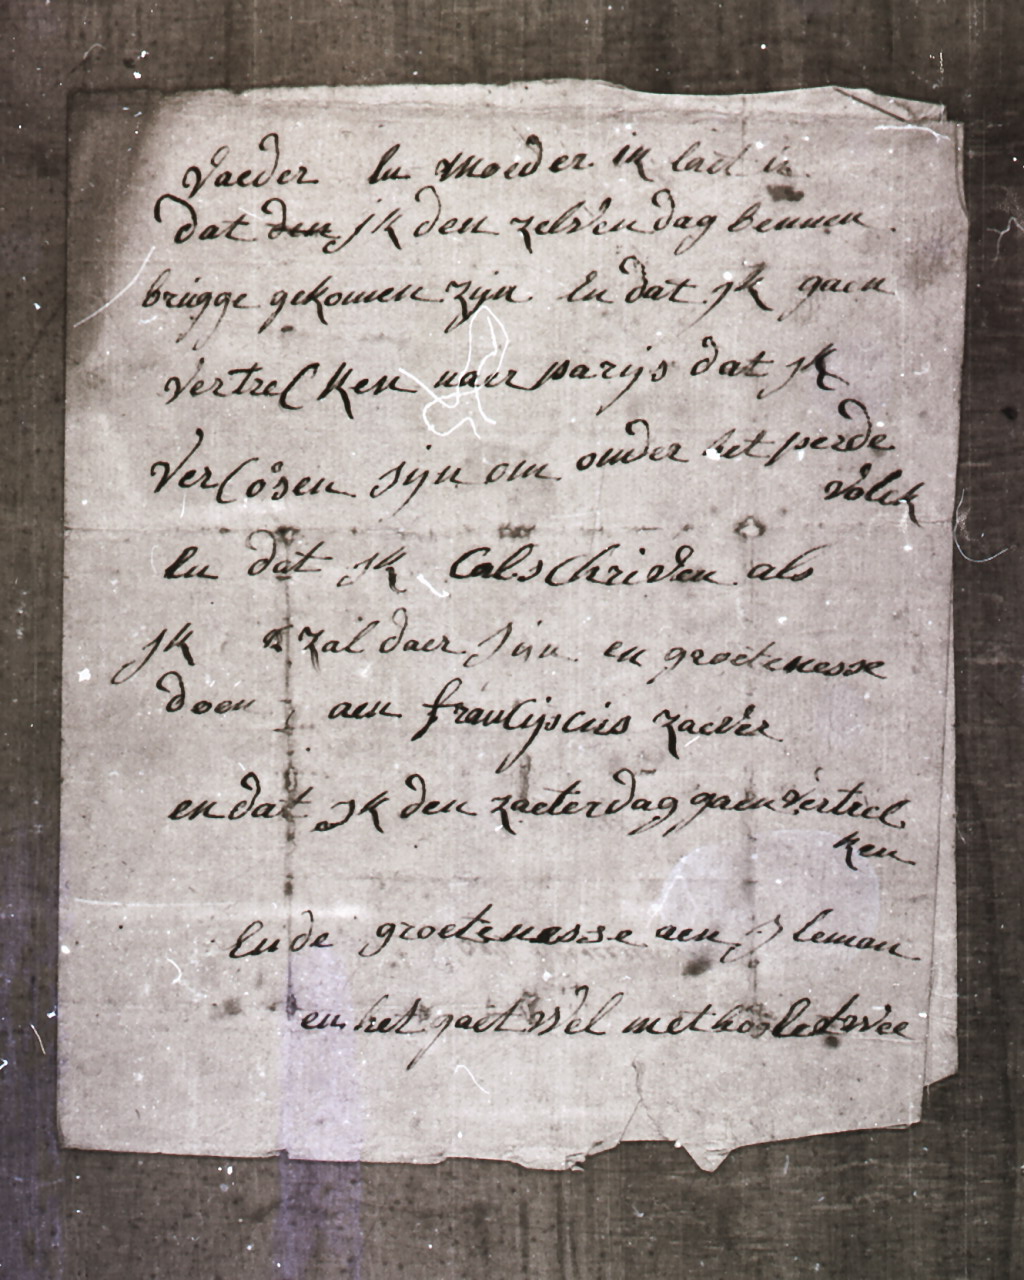 vaeder En moeder ik laet u
dat den jk den zelven dag bennen
brugge gekomen zijn En dat jk gaen
vertrecken naer parijs dat jk
vercosen sijn om onder het perde
volck
En dat jk Cal schriven als
jk zal daer sijn en groetenesse
doen aen franCijscus zaever
en dat jk den zaeterdag gaen vertrec
ken
Ende groetenesse aen J leman
en het gaet wel met